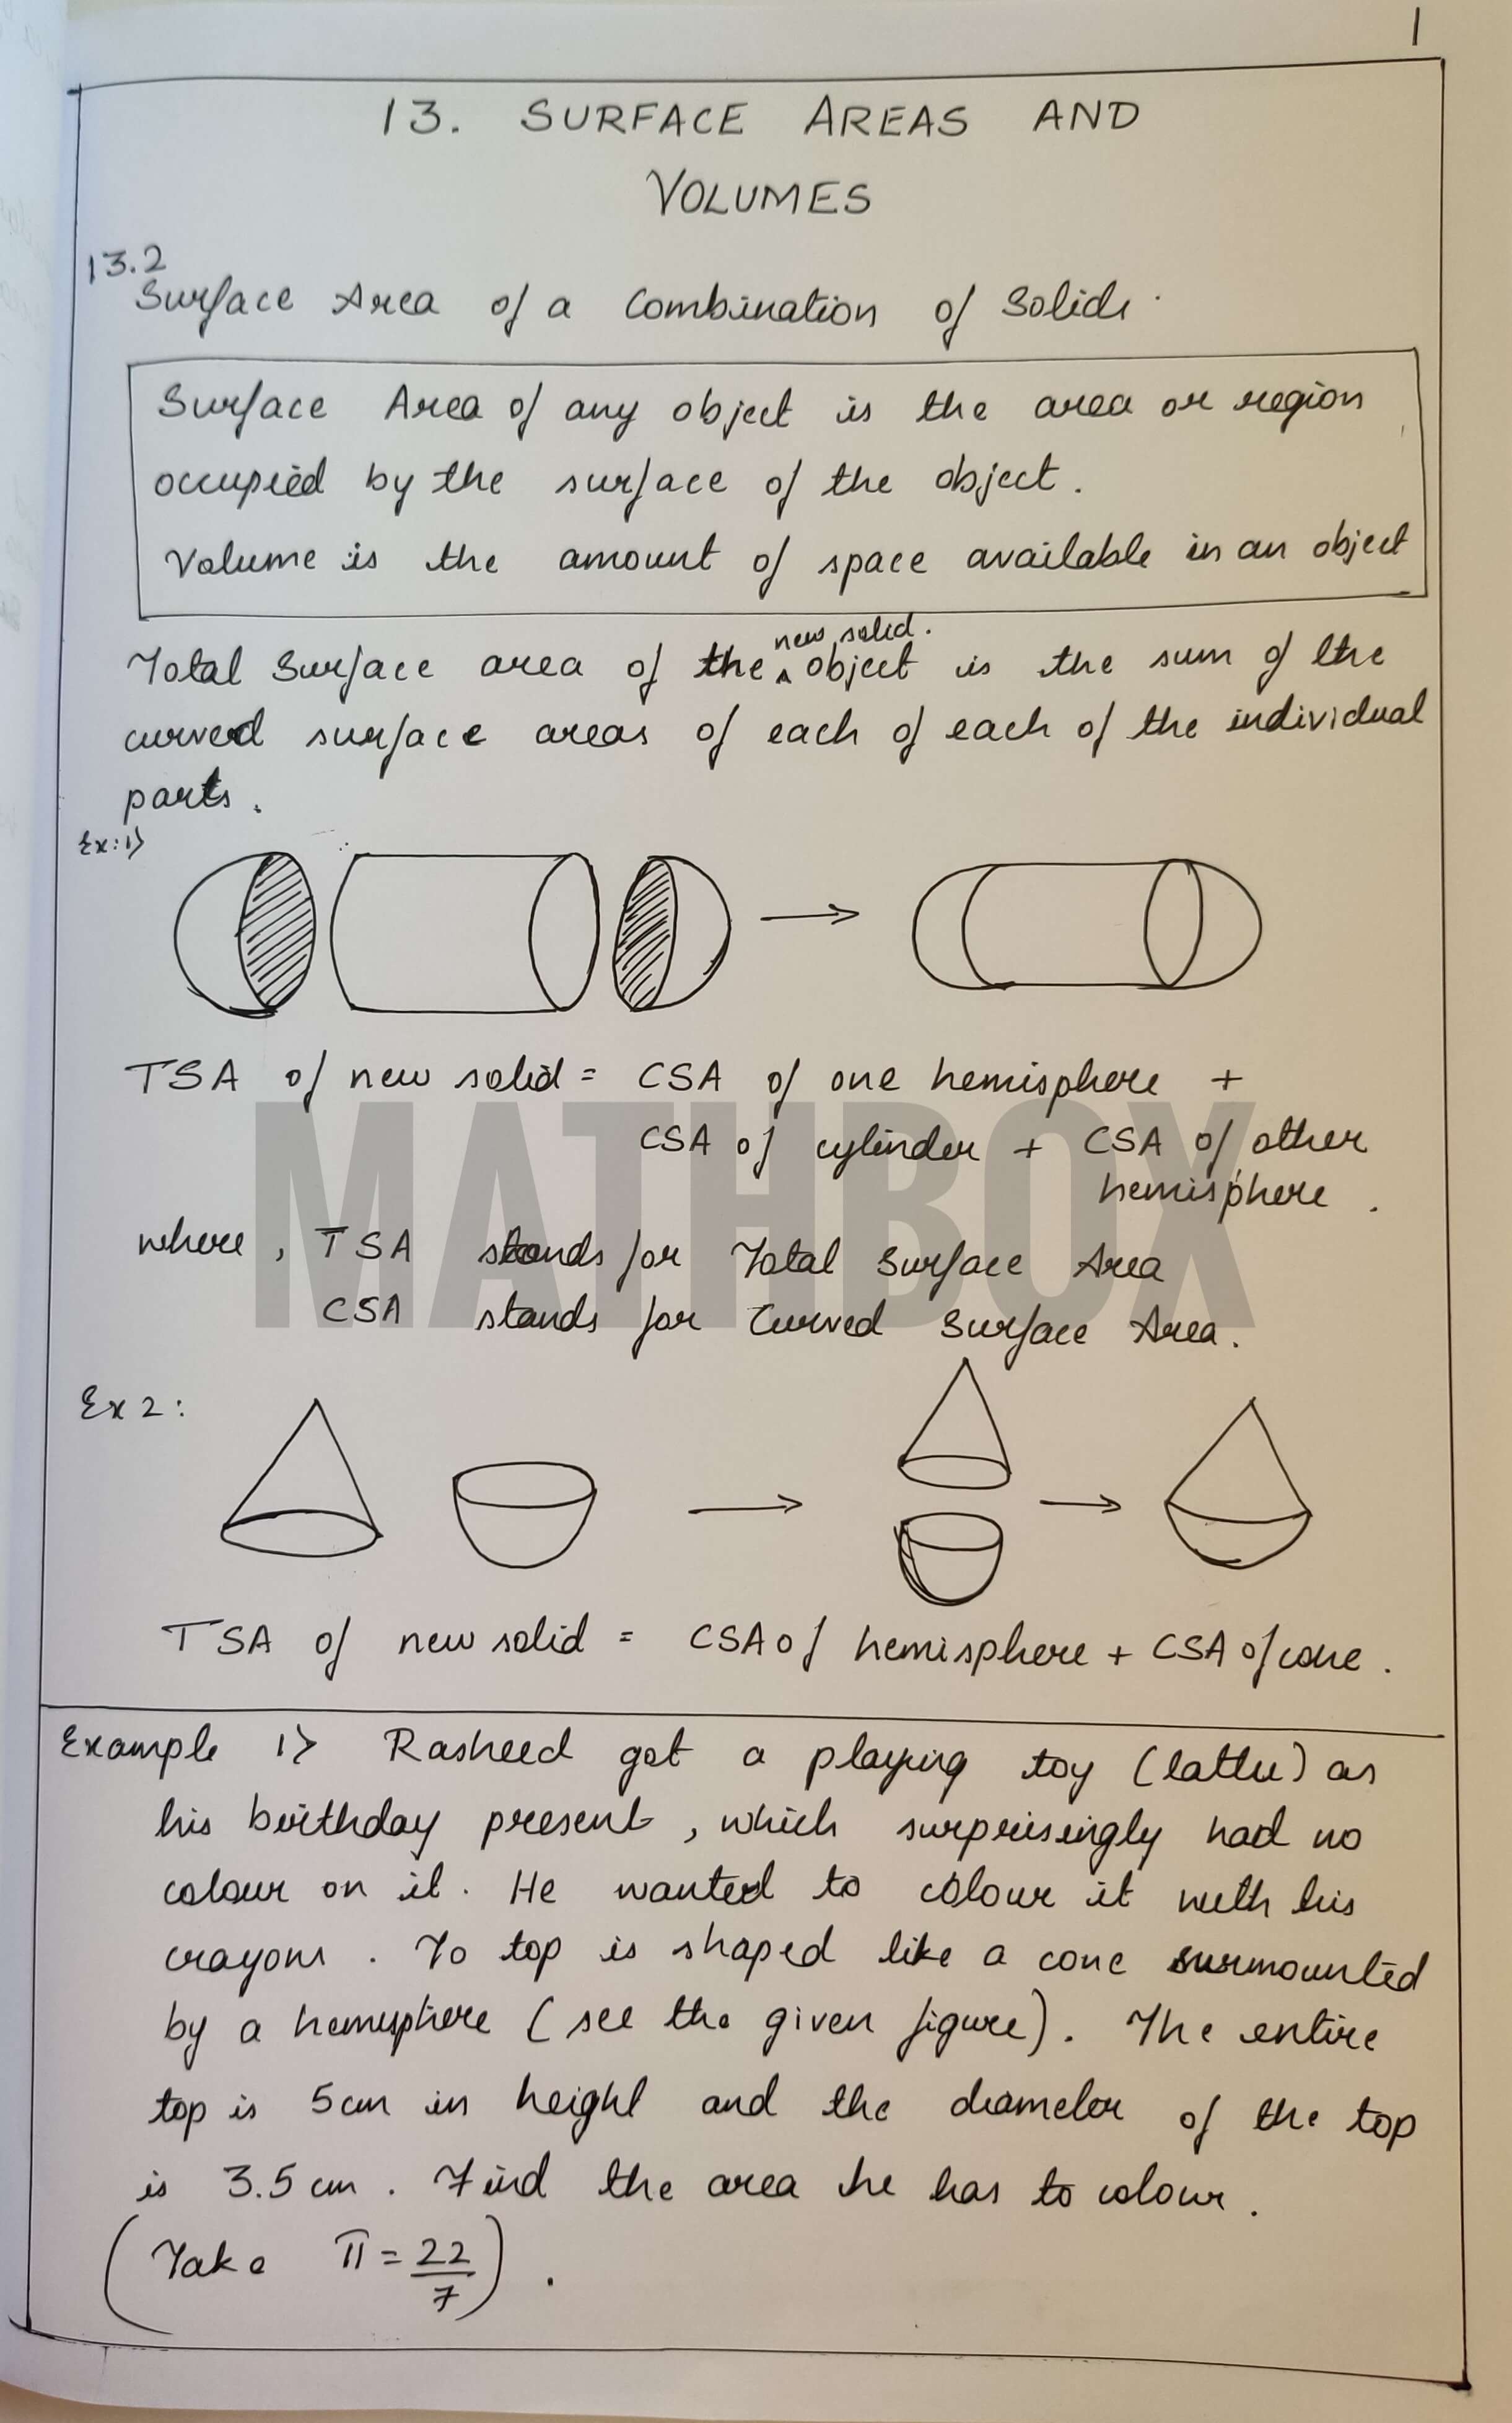 1
13. SURFACE AREAS AND
VOLUMES
13.2
Surface Area of a Combination of Solids.
Surface Area of any object is the area or region
occupied by the surface of the object.
Volume is the amount of space available in an object
new solid.
Total Surface area of the ^ object is the sum of the
curved surface areas of each of each of the individual
parts.
Ex:1>
TSA of new solid = CSA of one hemisphere +
CSA of cylinder + CSA of other
hemisphere.
MATHBOX
where, TSA stands for Total Surface Area
CSA stands for Curved Surface Area.
Ex 2:
TSA of new solid = CSA of hemisphere + CSA of cone.
Example 1> Rasheed got a playing toy (lattu) as
his birthday present, which surprisingly had no
colour on it. He wanted to colour it with his
crayons. To top is shaped like a cone surmounted
by a hemisphere (see the given figure). The entire
top is 5cm in height and the diameter of the top
is 3.5 cm. Find the area he has to colour.
(Take π = 22/7).